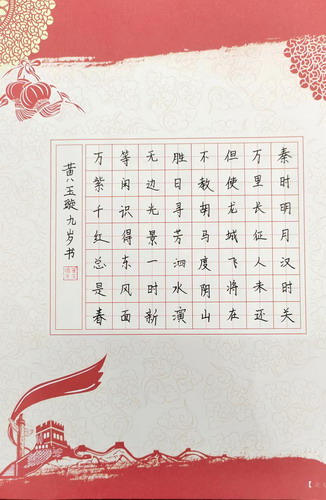 秦时明月汉时关
万里长征人未还
但使龙城飞将在
不教胡马度阴山
胜日寻芳泗水演
无边光景一时新
等闲识得东风面
万紫千红总是春
黄玉璇九岁书